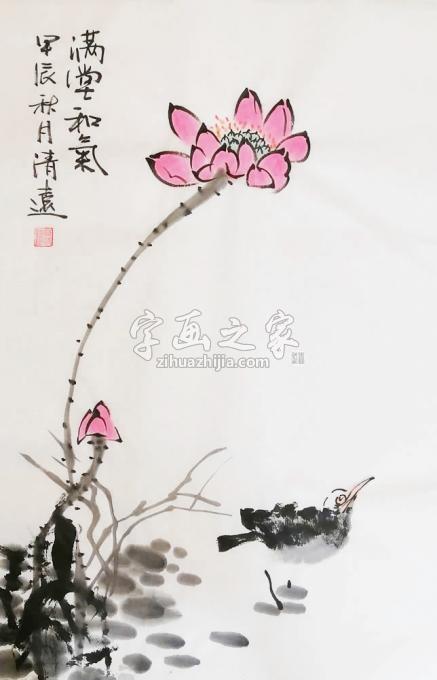 满堂和氣
甲辰秋月清遠
字画之家
zihuazhijia.com